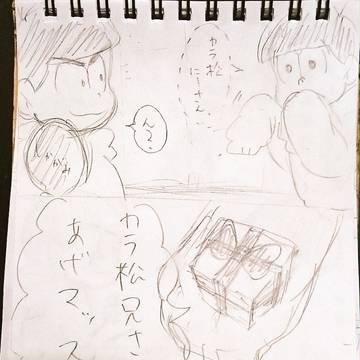 カラ松
にーさん、、
ん?
かがみ
カラ松兄さ
あげマッス